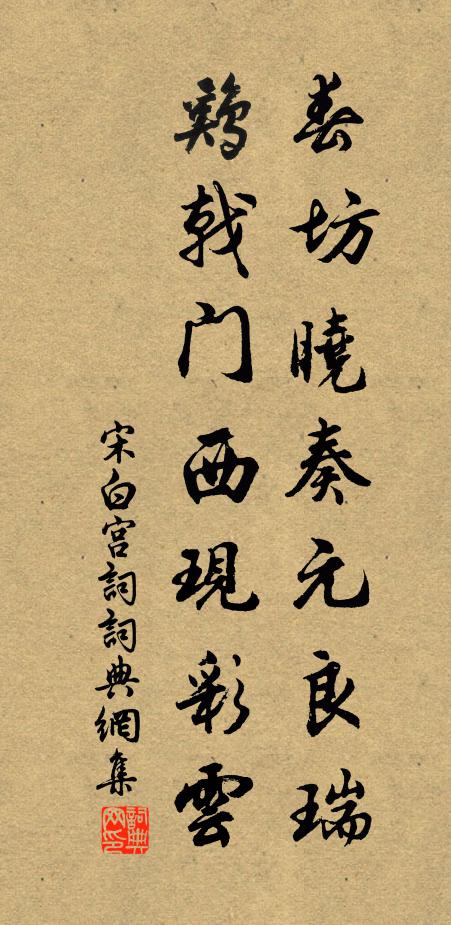 春坊曉奏元良瑞
鷄戟门西現彩雲
宋白宫詞詞典網集
詞典网印